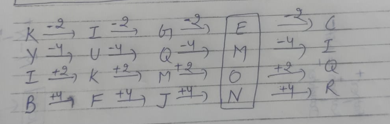 K -2→ I -2→ G -2→ E -2→ C
Y -4→ U -4→ Q -4→ M -4→ I
I +2→ K +2→ M +2→ O +2→ Q
B +4→ F +4→ J +4→ N +4→ R